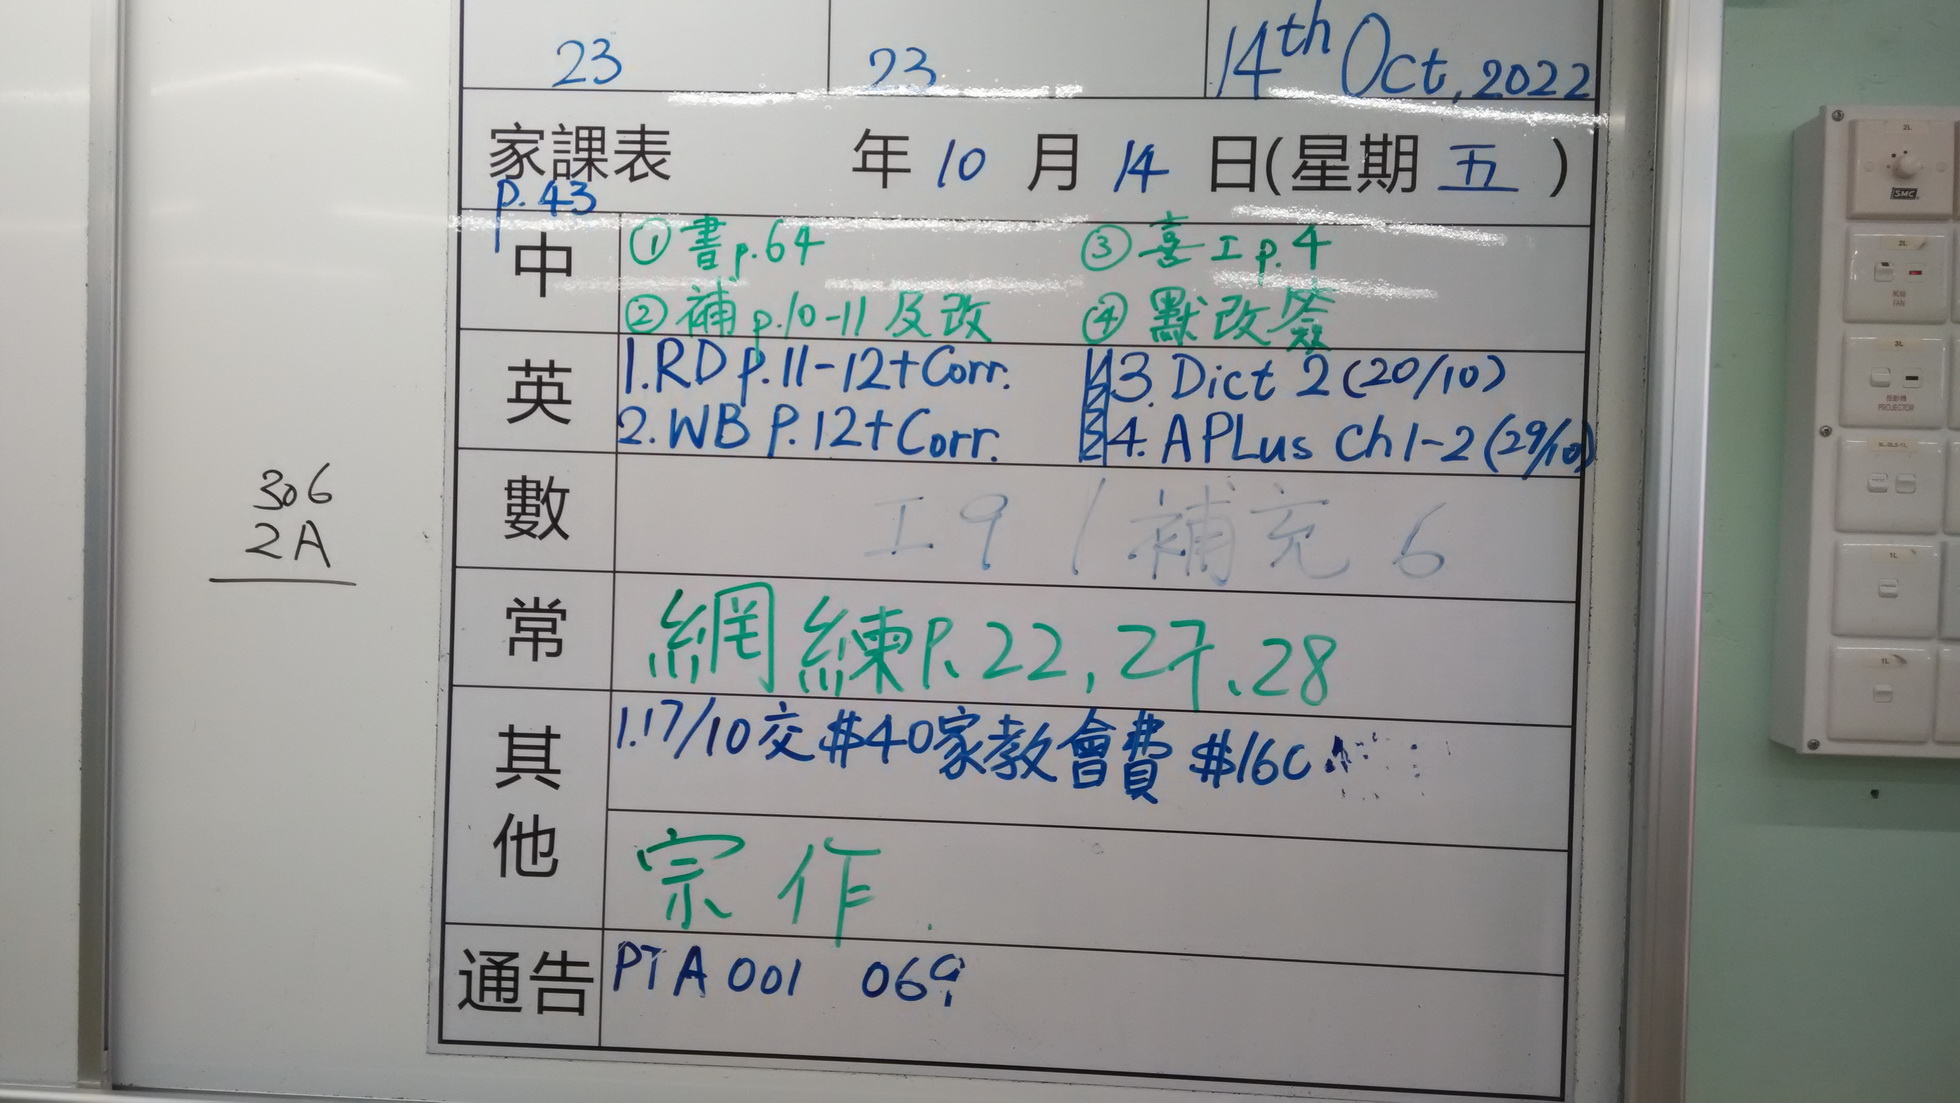 23 23 14th Oct, 2022
家課表 年 10 月 14 日(星期 五 )
p.43
中 ①書p.64 ③喜工p.4
②補p.10-11及改 ④默改簽
英 1.RD p.11-12+Corr. 3. Dict 2 (20/10)
2.WB P.12+Corr. 4. A PLus Ch 1-2 (29/10)
數 工9 / 補充 6
常 網練P.22, 27、28
其他 1.17/10交$40家教會費 $160
宗作.
通告 PTA 001 069
306
2A
2L
SMC
2L
FAN
3L
PROJECTOR
1L
1L